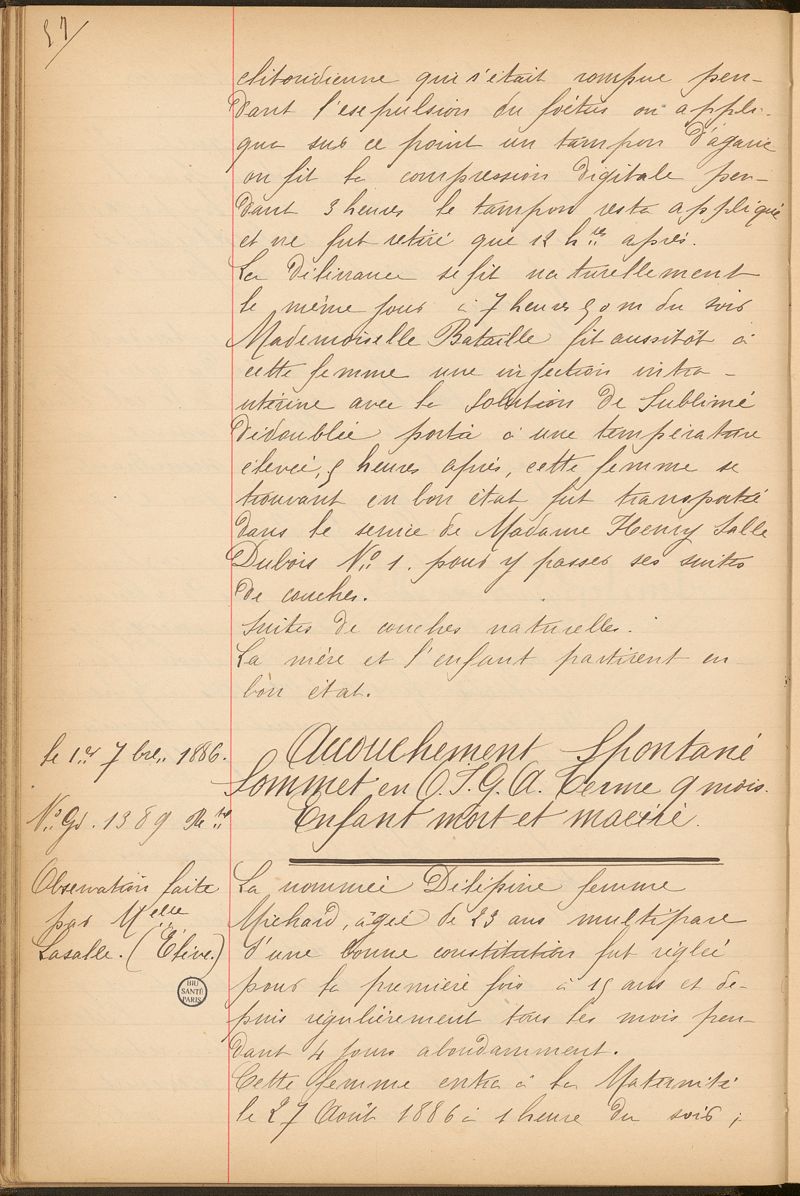 57/
clitoridienne qui s'était rompue pen-
dant l'esepulsion du foétus on appli-
qua sur ce point un tampon d'agaric
on fit la compression digitale pen-
dant 3 heures le tampon resta appliqué
et ne fut retiré que 12 h.res après.
La délivrance se fit naturellement
le même jour à 7 heures 50 m du soir
Mademoiselle Bataille fit aussitôt à
cette femme une injection intra-
utérine avec la solution de Sublimé
dédoublée porta à une température
élevée, 5 heures après, cette femme se
trouvant en bon état fut transportée
dans le service de Madame Henry Salle
Dubois No. 1. pour y passer ses suites
de couches.
Suites de couches naturelles.
La mère et l'enfant partirent en
bon état.
le 1.er 7 bre.. 1886.
No. Gd. 1389 Rte
Observation faite
par Melle
Lasalle. (Elève.)
BIU
SANTÉ
PARIS
Accouchement Spontané
Sommet en O.I.G.A. Terme 9 mois.
Enfant mort et macéré.
La nommée Délépine femme
Michard, âgée de 23 ans multipare
d'une bonne constitution fut réglée
pour la première fois à 15 ans et de-
puis régulièrement tous les mois pen-
dant 4 jours abondamment.
Cette femme entra à la Maternité
le 27 Août 1886 à 1 heure du soir ;